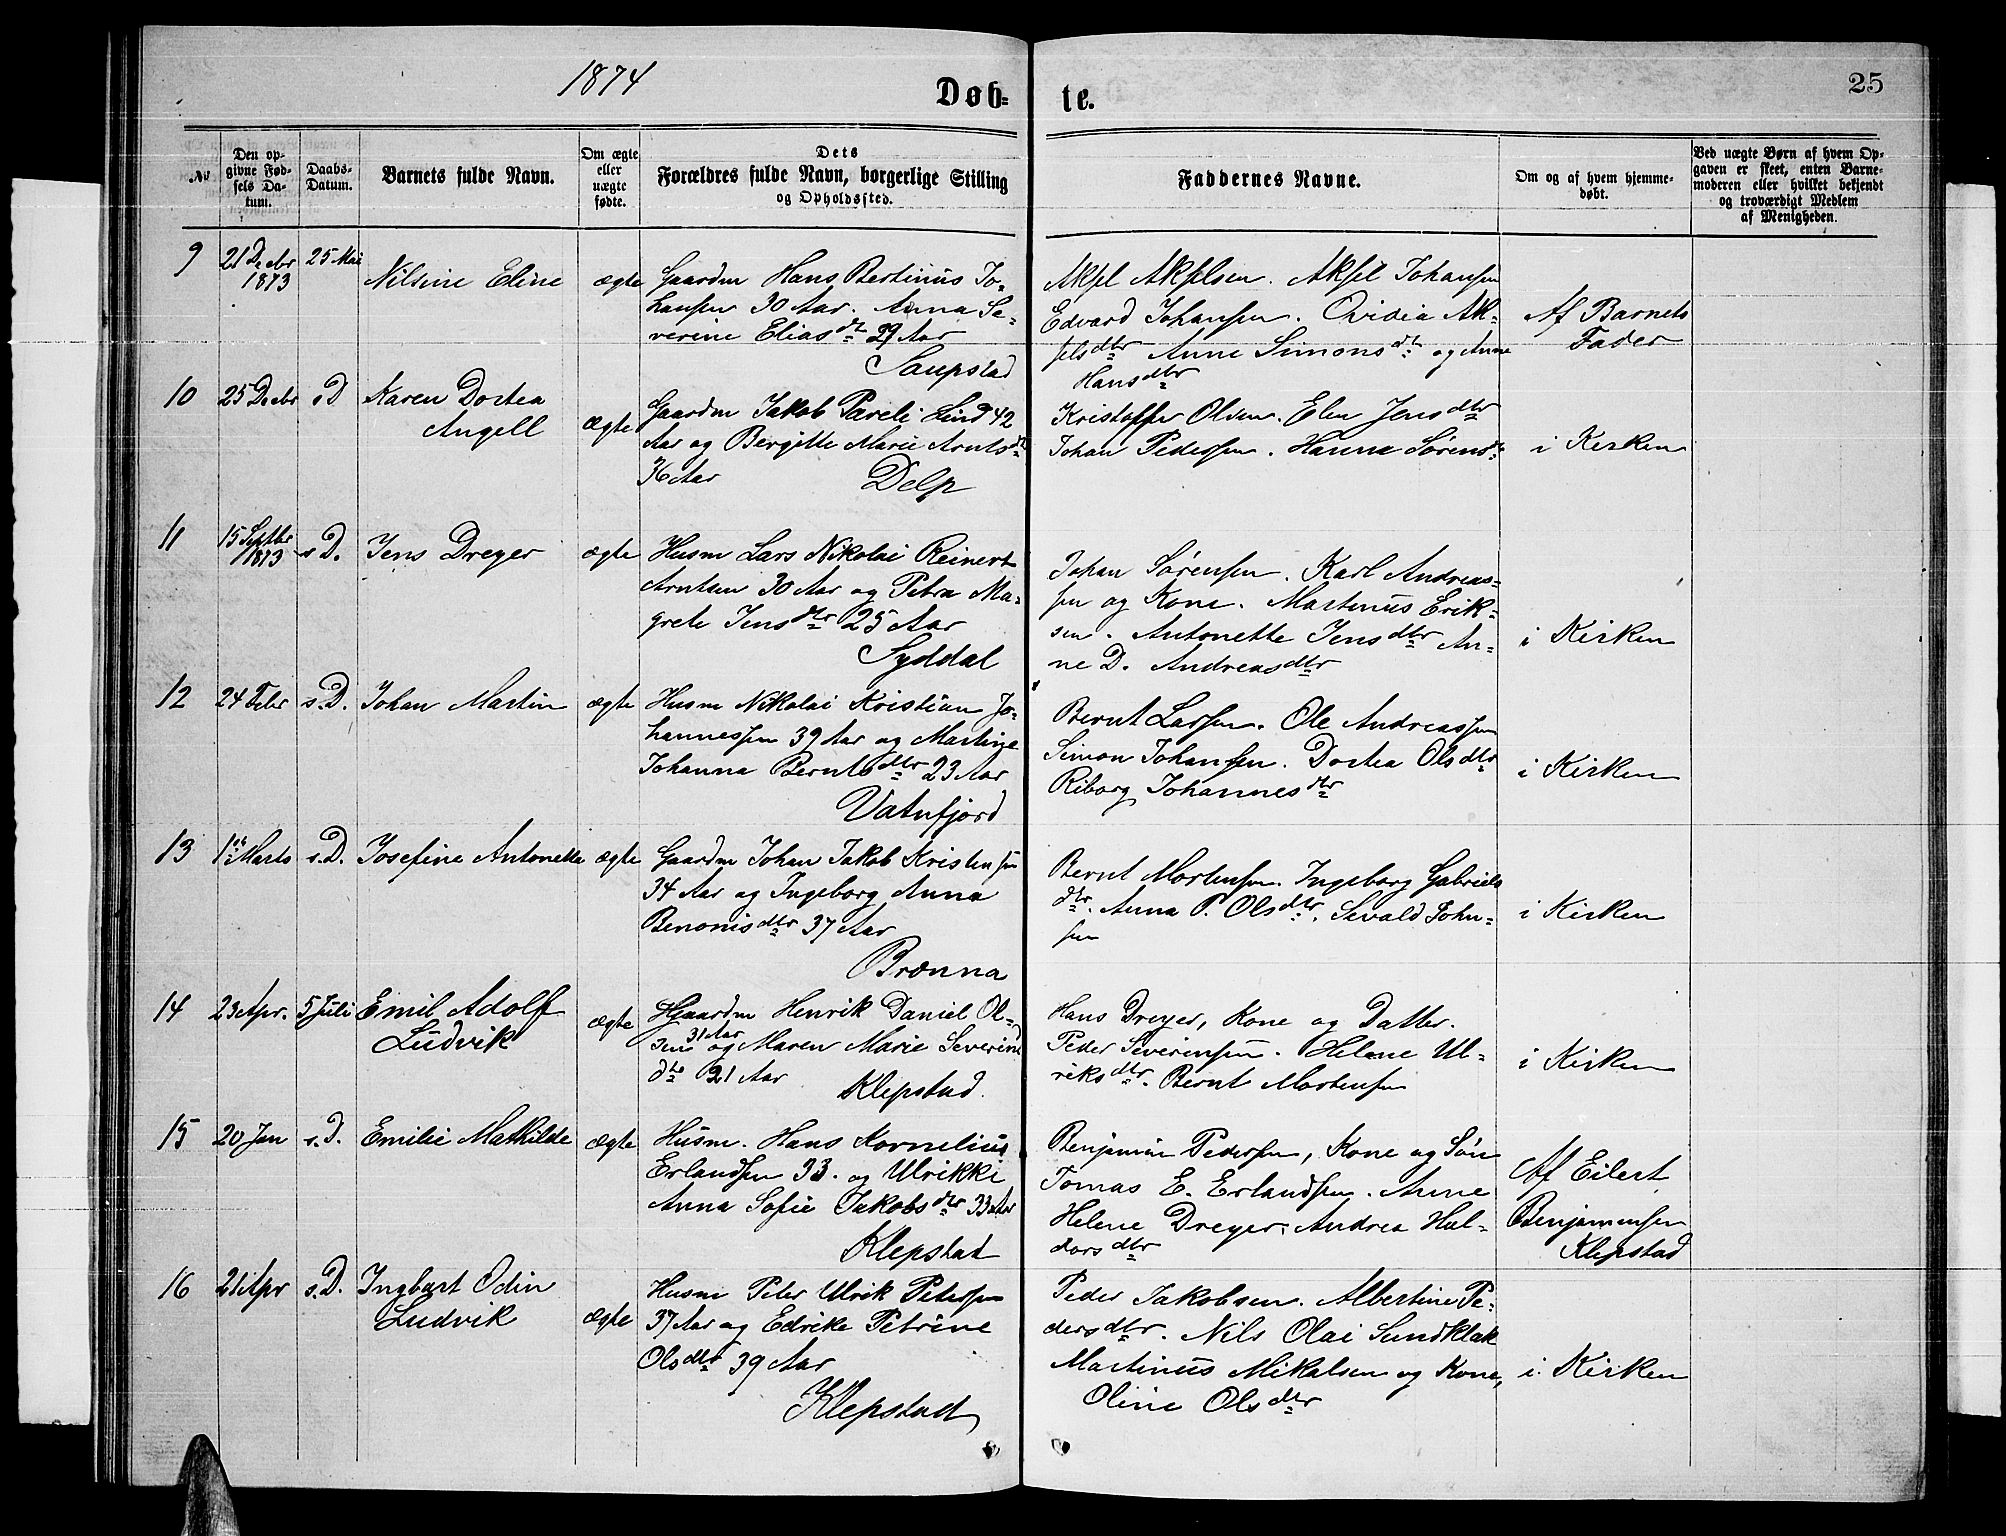 1874
Døb-
te.
25
No
Den opgivne Fødsels Datum.
Daabs-Datum.
Barnets fulde Navn.
Om ægte eller uægte fødte.
Dets Forældres fulde Navn, borgerlige Stilling og Opholdssted.
Faddernes Navne.
Om og af hvem hjemmedøbt.
Ved uægte Børn af hvem Opgaven er skeet, enten Barnemoderen eller hvilket bekjendt og troværdigt Medlem af Menigheden.
9
21 Decbr 1873
25 Mai
Nilsine Eline
ægte
Gaardm Hans Bertinus Jo-
hansen 30 Aar. Anna Se-
verine Eliasdtr 29 Aar
Saupstad
Aksel Akselsen. Aksel Johansen
Edvard Johansen. Ovidia Ak-
selsdtr Anne Simonsdtr og Anne
Hansdtr
Af Barnets
Fader
10
25 Decbr
s D
Karen Dortea
Angell
ægte
Gaardm Jakob Pareli Lind 42
Aar og Bergitte Marie Arntsdtr
36 Aar
Delp
Kristoffer Olsen. Elen Jensdtr
Johan Pedersen. Hanna Sørensdtr
i Kirken
11
15 Septbr 1873
s D.
Jens Dreyer
ægte
Husm Lars Nikolai Reinert
Arntsen 30 Aar og Petra Ma-
grete Jensdtr 25 Aar
Syddal
Johan Sørensen. Karl Andreas-
sen og Kone. Martinus Erik-
sen. Antonette Jensdtr An-
ne D. Andreasdtr
i Kirken
12
24 Febr
s. D.
Johan Martin
ægte
Husm Nikolai Kristian Jo-
hannessen 39 Aar og Martine
Johanna Berntsdtr 23 Aar
Vatnfjord
Bernt Larsen. Ole Andreassen
Simon Johansen. Dortea Olsdtr
Riborg Johannesdtr
i Kirken
13
1ste Marts
s. D.
Josefine Antonette
ægte
Gaardm Johan Jakob Kristensen
34 Aar og Ingeborg Anna
Benonisdtr 37 Aar
Brenna
Bernt Mortensen. Ingeborg Gabriels
dtr. Anna P. Olsdtr. Sevald John-
sen
i Kirken
14
23 Apr.
5 Juli
Emil Adolf
Ludvik
ægte
Gaardm Henrik Daniel Ol-
sen 31 Aar og Maren Marie Severine
dtr 21 Aar
Klepstad.
Hans Dreyer, Kone og Datter.
Peder Severinsen. Helene Ul-
riksdtr. Bernt Mortensen
i Kirken
15
20 Jan
s. D.
Emilie Mathilde
ægte
Husm. Hans Kornelius
Erlandsen 33. og Ulrikke
Anna Sofie Jakobsdtr 33 Aar
Klepstad
Benjamin Pedersen, Kone og Søn
Tomas E. Erlandsen. Anne
Helene Dreyer. Andrea Hal-
dorsdtr
Af Eilert
Benjaminsen
Klepstad
16
21 Apr
s. D.
Ingbart Odin
Ludvik
ægte
Husm Peter Ulrik Petersen
37 Aar og Edrike Petrine
Olsdtr 39 Aar
Klepstad
Peder Jakobsen. Albertine Pe-
dersdtr. Nils Olai Sundklak
Martinus Mikalsen og Kone,
Oline Olsdtr
i Kirken